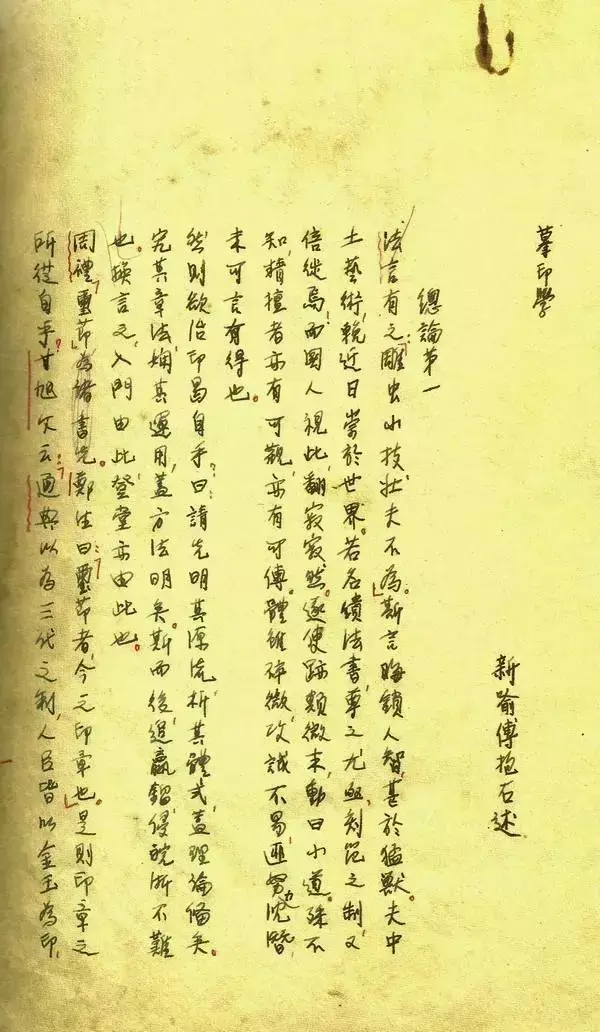 摹印學
新喻傅抱石述
總論第一
法言有之：「雕虫小技，壯夫不為。」斯言晦鎖人智，甚於猛獸。夫中
土藝術，輓近日崇於世界。若名繢法書，尊之尤亟，刻笵之制，又
倍徙焉。而國人視此，翻寂寂然。遂使跡類微末，動曰小道。殊不
知，精擅者亦有可觀，亦有可傳。體雖碎微，攻誠不易，匪努力沈潛，
未可言有得也。
然則欲治印曷自乎？曰：請先明其源流，析其體式，蓋理論備矣。
究其章法，嫻其運用，蓋方法明矣。斯而後追嬴鎦，侵晥浙不難
也。賅言之，入門由此，登堂亦由此也。
周禮璽節為諸書先。鄭注曰：「璽節者，今之印章也。」是則印章之
所從自乎？甘旭欠云：「通典以為三代之制，人臣皆以金玉為印，